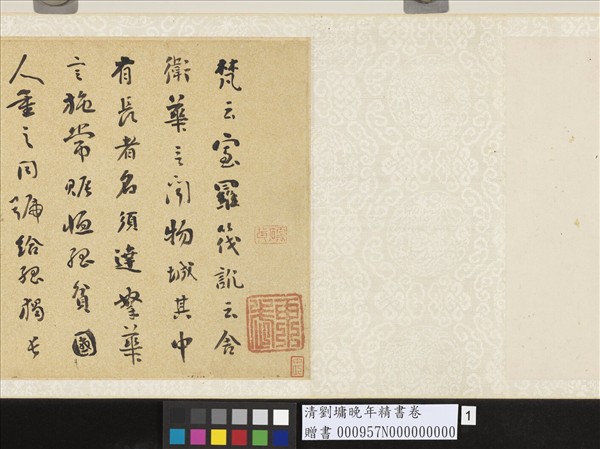 梵云室羅筏訛云舍
衛華言聞物城其中
有長者名須達拏華
言施常賑恤孤貧國
人重之同號給孤獨長
清劉墉晚年精書卷
贈書 000957N000000000
1